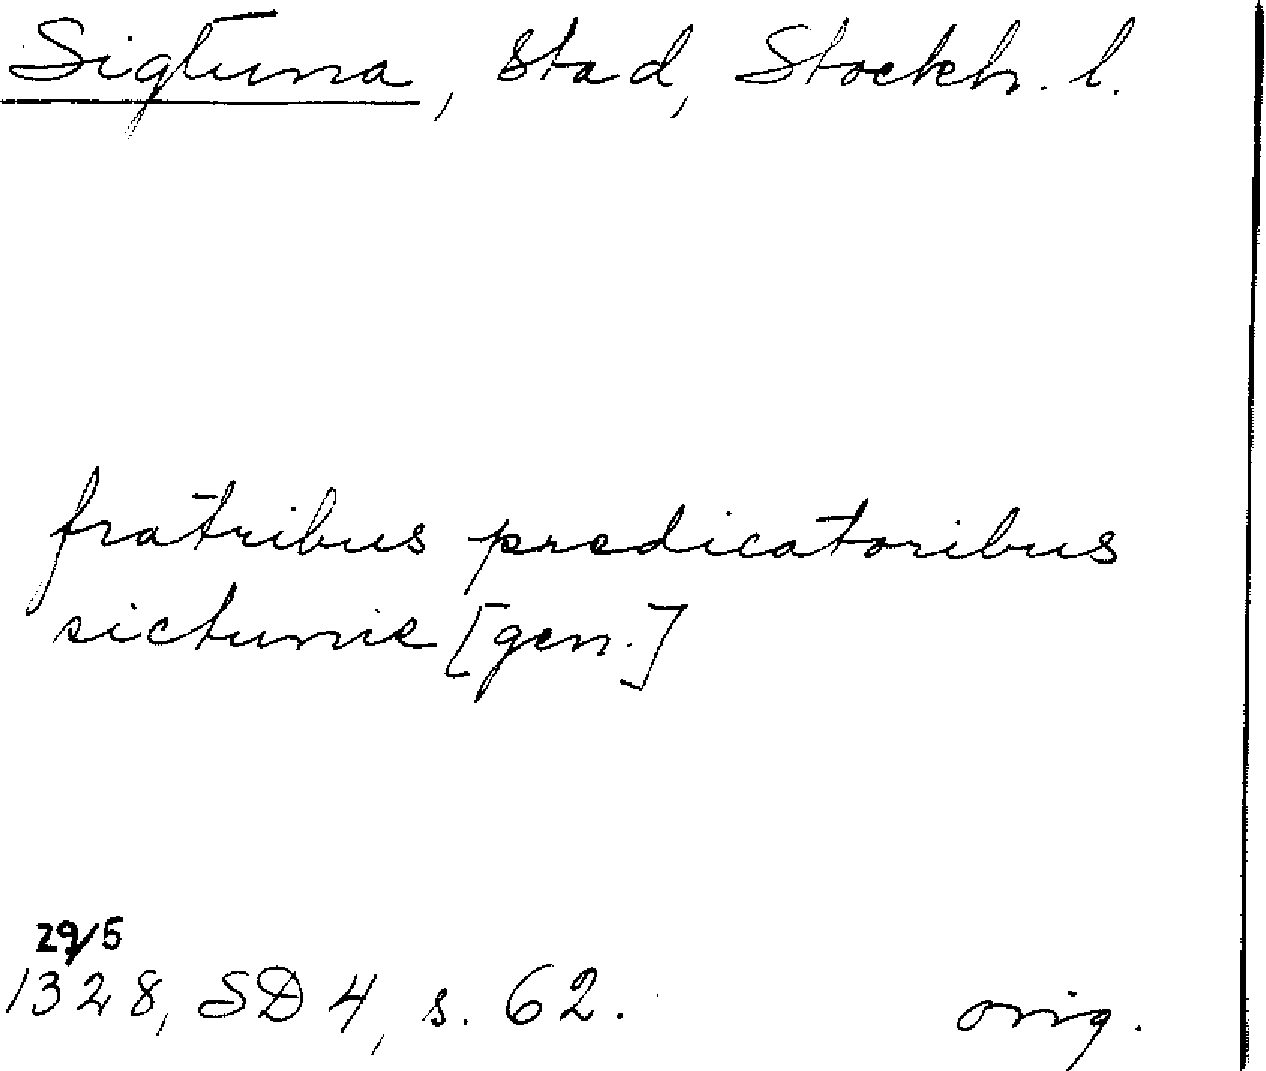 Sigtuna, Stad, Stockh. l.
fratribus predicatoribus
sictunie [gen.]
29/5
1328, SD 4, s. 62.
orig.